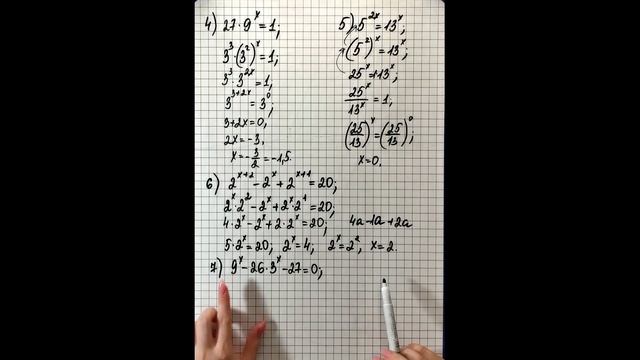 4) 27·9^x=1;
3^3·(3^2)^x=1;
3^3·3^{2x}=1,
3^{3+2x}=3^0;
3+2x=0,
2x=-3,
x=-\frac{3}{2}=-1,5.
5) 5^{2x}=13^x;
(5^2)^x=13^x;
25^x=13^x;
\frac{25^x}{13^x}=1,
(\frac{25}{13})^x=(\frac{25}{13})^0;
x=0.
6) 2^{x+2}-2^x+2^{x+1}=20;
2^x·2^2-2^x+2^x·2^1=20;
4·2^x-2^x+2·2^x=20; 4a-1a+2a
5·2^x=20; 2^x=4; 2^x=2^2, x=2.
7) 9^x-26·3^x-27=0;